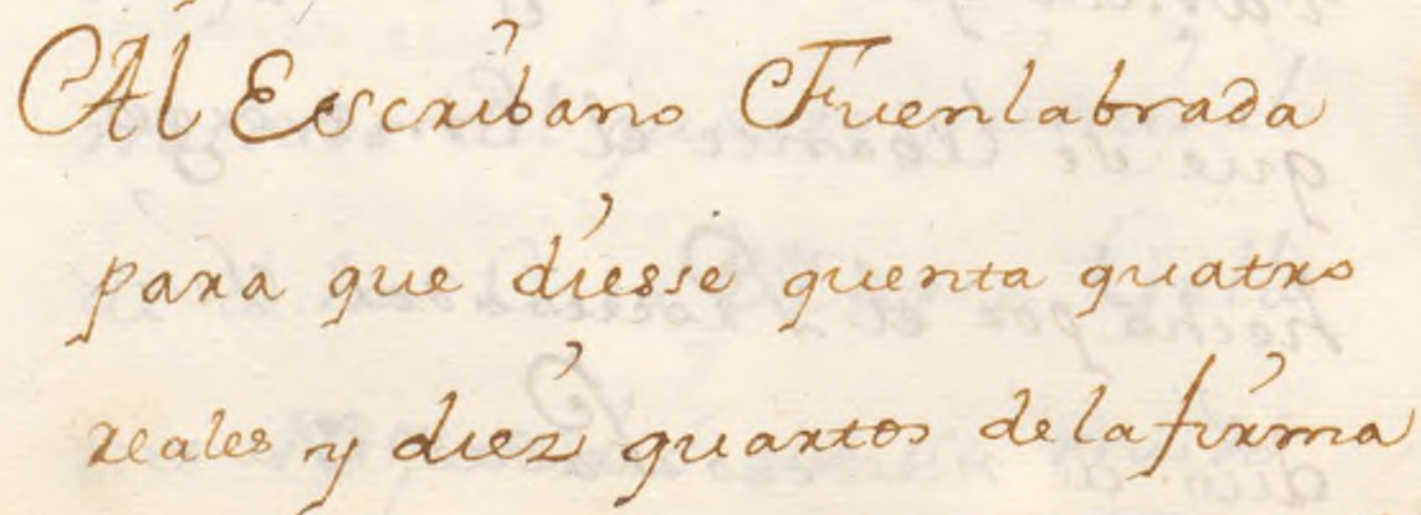 Al Escribano Fuenlabrada
para que diesse quenta quatro
reales y diez quartos de la firma